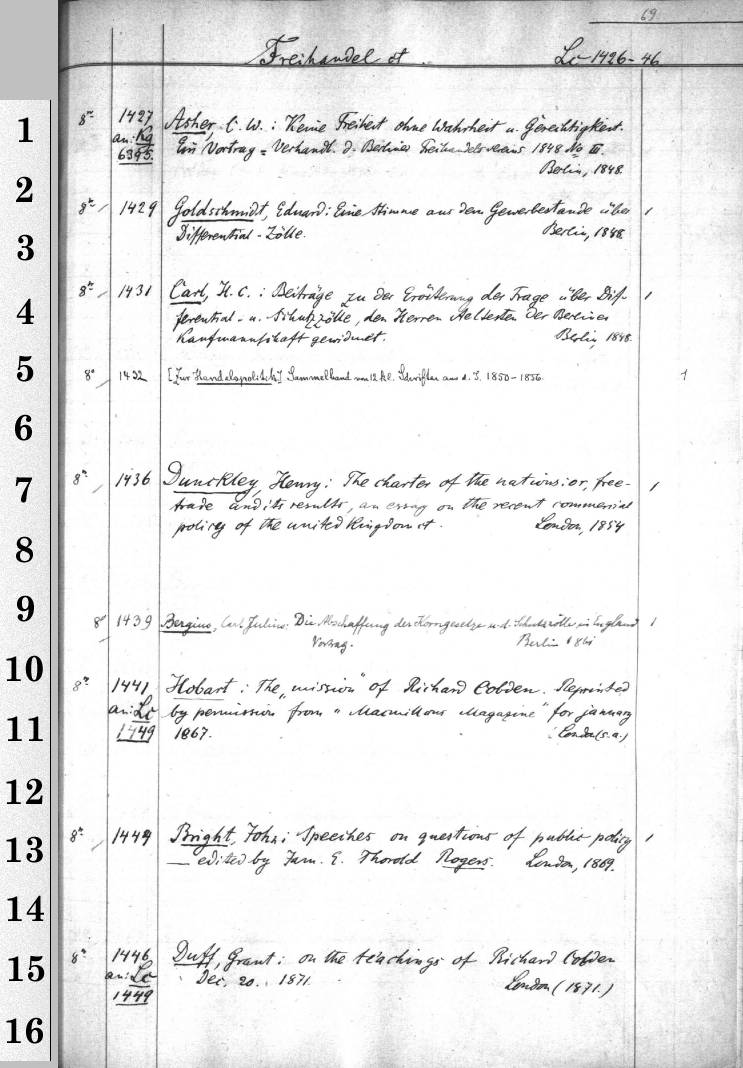 69
Freihandel et Lc 1426-46
8° 1427 Asher, C. W.: Keine Freiheit ohne Wahrheit u. Gerechtigkeit.
an: Kg Ein Vortrag = Verhandl. d. Berliner Freihandelsvereins 1848 No III.
6395. Berlin, 1848.
8° 1429 Goldschmidt, Eduard: Eine Stimme aus dem Gewerbestande über 1
Differential-Zölle. Berlin, 1848.
8° 1431 Carl, H. C.: Beiträge zu der Erörterung der Frage über Dif- 1
ferential- u. Schutzzölle, den Herren Aeltesten der Berliner
Kaufmannschaft gewidmet. Berlin, 1848.
8° 1432 [Zur Handelspolitik] Sammelband von 12 kl. Schriften aus d. J. 1850-1856. 1
8° 1436 Dunckley, Henry: The charter of the nations: or, free- 1
trade and its results, an essay on the recent commercial
policy of the united Kingdom et. London, 1854
8° 1439 Bergius, Carl Julius: Die Abschaffung der Korngesetze u. d. Schutzzölle in England 1
Vortrag. Berlin 1861
8° 1441 Hobart: The "mission" of Richard Cobden. Reprinted
an: Lc by permission from "Macmillans Magazine" for january
1449 1867. London (s.a.)
8° 1449 Bright, John: Speeches on questions of public policy 1
— edited by Jam. E. Thorold Rogers. London, 1869.
8° 1446 Duff, Grant: on the teachings of Richard Cobden
an: Lc Dec. 20. 1871.
1449 London (1871.)
1
2
3
4
5
6
7
8
9
10
11
12
13
14
15
16